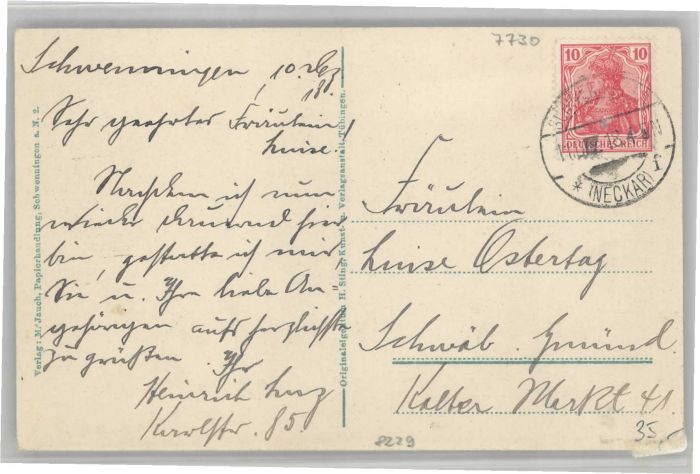 7730
Schwenningen, 10. Dez.
18.
Sehr geehrtes Fräulein
Luise!
Nachdem ich nun
wieder dauernd hier
bin, gestatte ich mir,
Sie u. Ihre liebe An-
gehörigen aufs herzlichste
zu grüßen. Ihr
Heinrich
Karlstr. 85.
Verlag: M. Jauch, Papierhandlung, Schwenningen a. N. 2.
Originaleigentum H. Sting, Kunst- u. Verlagsanstalt, Tübingen.
10 10
DEUTSCHES REICH
* (NECKAR)
Fräulein
Luise Ostertag
Schwäb. Gmünd
Kalter Markt 41.
35,-
8229